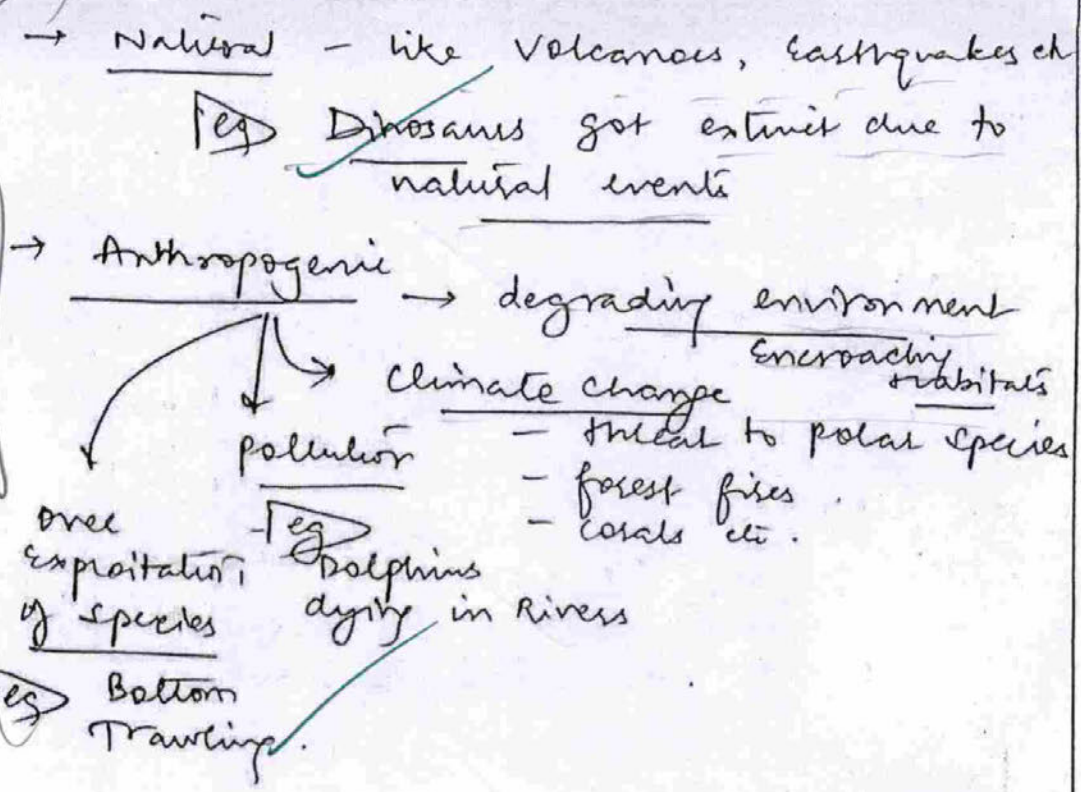 → Natural - like Volcanoes, Earthquakes etc
eg Dinosaurs got extinct due to
natural events
→ Anthropogenic → degrading environment
Encroaching
Habitats
Climate change
- threat to polar species
- forest fires.
- corals etc.
pollution
eg
Dolphins
dying in Rivers
over
exploitation
of species
eg Bottom
Trawling.